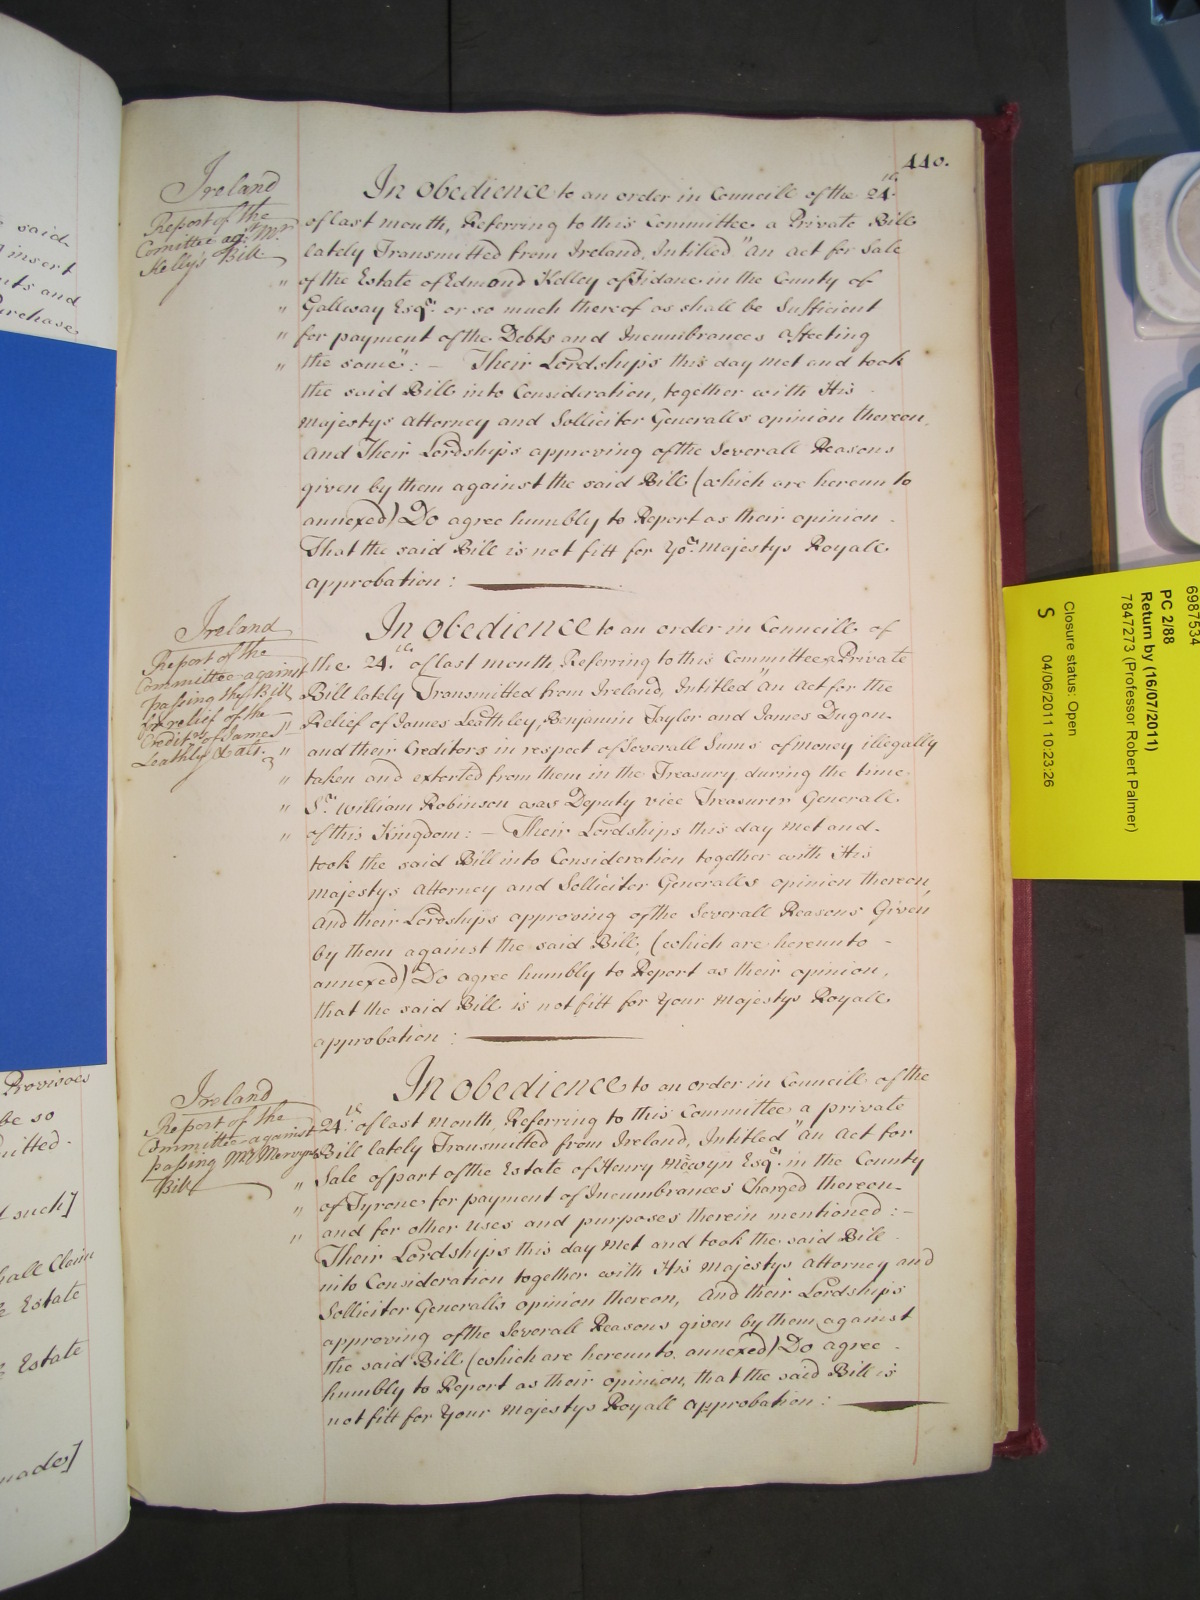 440.
Ireland
Report of the
Comittee agt. Mr.
Kelly's Bill
In Obedience to an order in Councill of the 24th.
of last month, Referring to this Committee a Private Bill
lately Transmitted from Ireland, Intitled "An Act for Sale
" of the Estate of Edmond Kelley of Fidane in the County of
" Gallway Esqr. or so much thereof as shall be Sufficient
" for payment of the Debts and Incumbrances affecting
" the same": — Their Lordships this day met and took
the said Bill into Consideration, together with His
Majestys Attorney and Solliciter Generalls opinion thereon,
And Their Lordships approving of the Severall Reasons
given by them against the said Bill (which are hereunto
annexed) Do agree humbly to Report as their opinion
That the said Bill is not fitt for Yor. Majestys Royall
approbation:
Ireland
Report of the
Committee against
passing the Bill
for relief of the
Creditrs. of James
Leathly & alt.
In Obedience to an order in Councill of
the 24th. of last month, Referring to this Committee a Private
Bill lately Transmitted from Ireland, Intitled "An Act for the
" Relief of James Leathley, Benjamin Taylor and James Dugan
" and their Creditors in respect of Severall Sums of money illegally
" taken and extorted from them in the Treasury during the time
" Sr. William Robinson was Deputy vice Treasurer Generall
" of this Kingdom: — Their Lordships this day met and
took the said Bill into Consideration together with His
Majestys Attorney and Solliciter Generalls opinion thereon,
And their Lordships approving of the Severall Reasons Given
by them against the said Bill, (which are hereunto
annexed) Do agree humbly to Report as their opinion,
that the said Bill is not fitt for Your Majestys Royall
approbation:
Ireland
Report of the
Committee against
passing Mr. Mervyns
Bill
In Obedience to an order in Councill of the
24th. of last Month, Referring to this Committee a private
Bill lately Transmitted from Ireland, Intitled "An Act for
" Sale of part of the Estate of Henry Mervyn Esqr. in the County
" of Tyrone for payment of Incumbrances Charged thereon
" and for other uses and purposes therein mentioned: —
Their Lordships this day met and took the said Bill
into Consideration together with His Majestys Attorney and
Solliciter Generalls opinion thereon, And their Lordships
approving of the Severall Reasons given by them against
the said Bill (which are hereunto annexed) Do agree
humbly to Report as their opinion, that the said Bill is
not fitt for Your Majestys Royall approbation:
said
insert
and
Purchase
Provisoes
be so
such]
shall Claim
Estate
Estate
6987534
PC 2/88
Return by (16/07/2011)
7847273 (Professor Robert Palmer)
Closure status: Open
S 04/06/2011 10:23:26